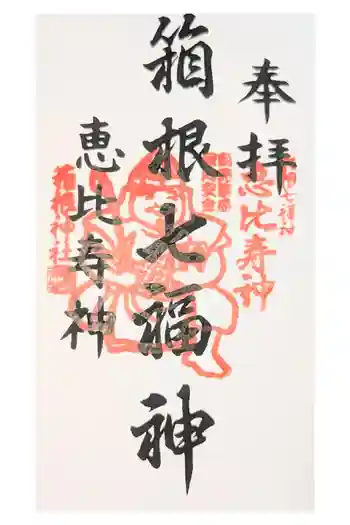 奉拝
箱根七福神
恵比寿神
恵比寿神
箱根神社